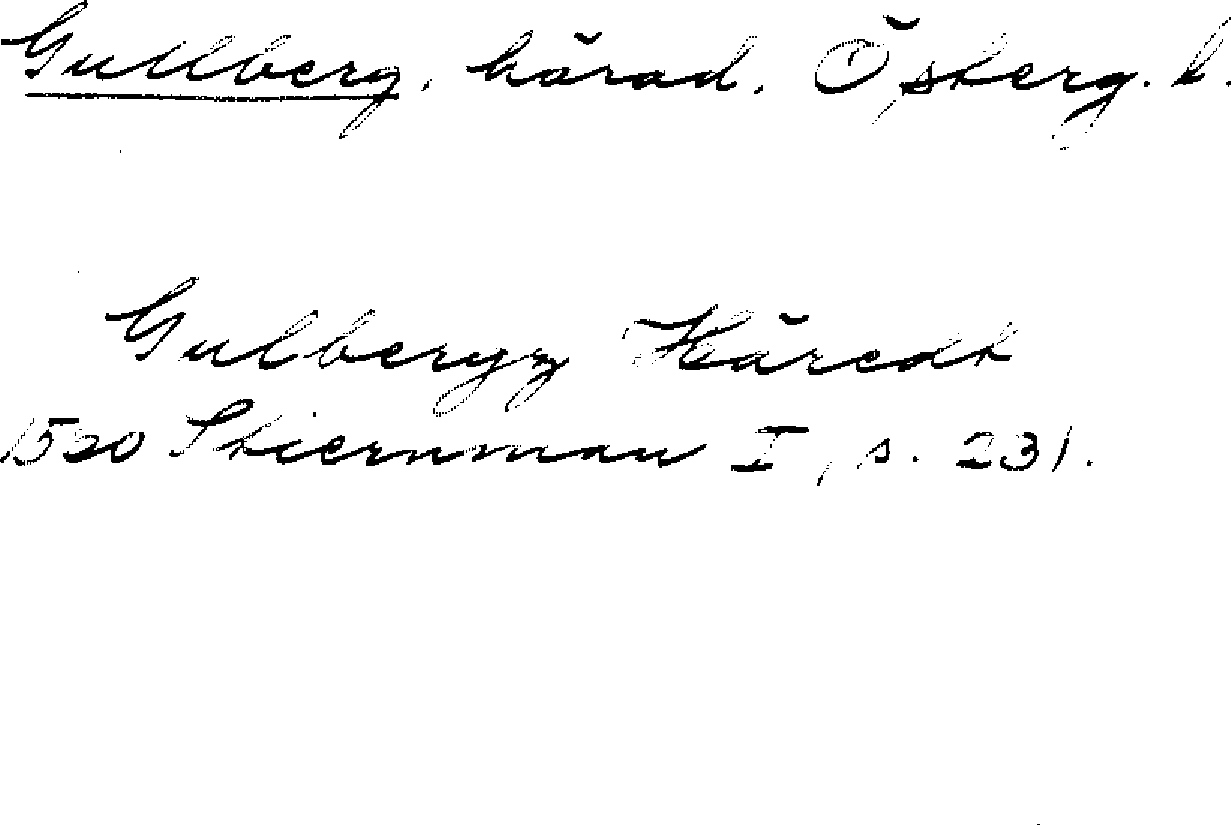 Gullberg, härad. Österg. l.
Gulbergz Häredt
1520 Stiernman I, s. 231.